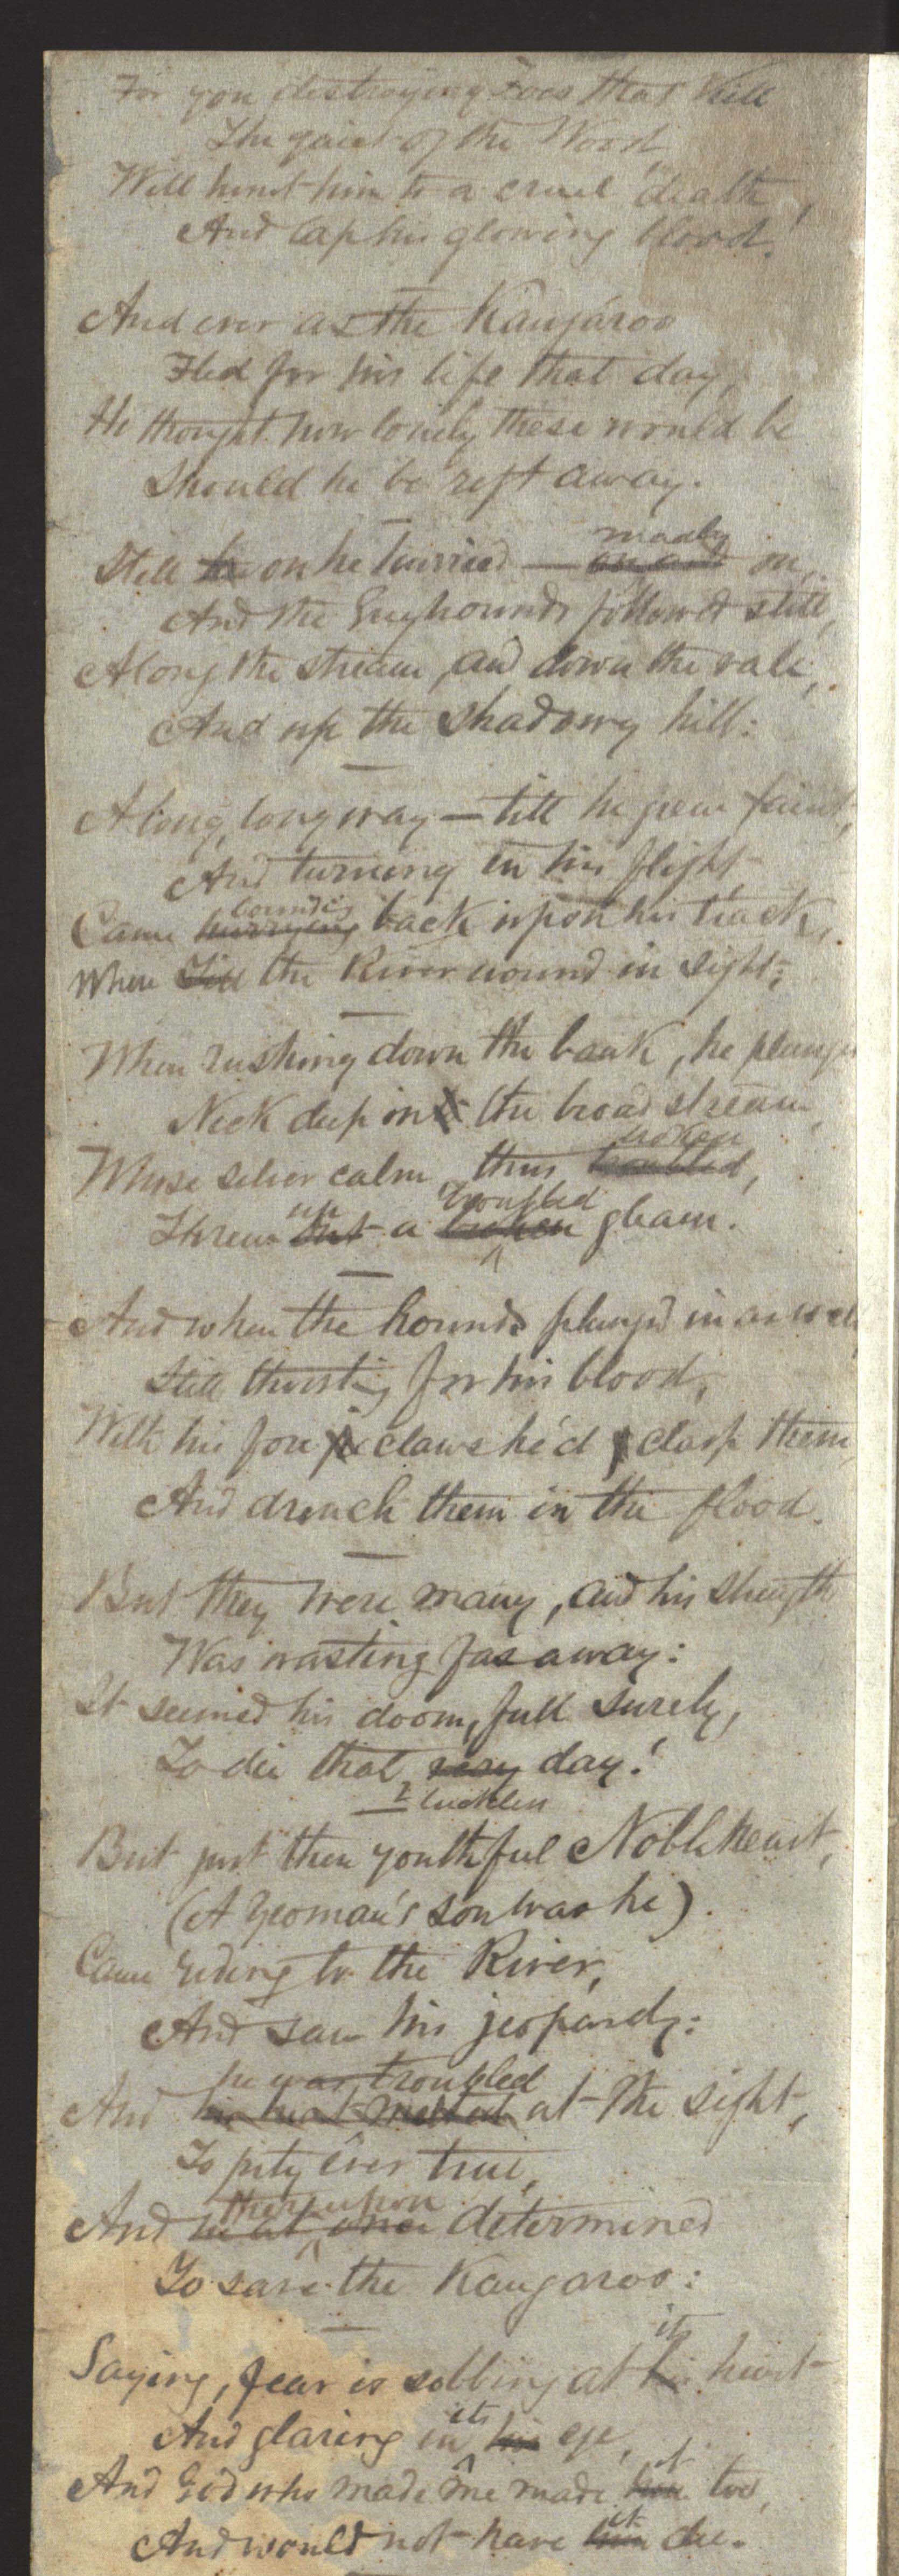 For you destroying Foes that kill
The quiet of the Wood,
Will hunt him to a cruel death,
And lap his glowing blood!
And ever as the Kangaroo
Fled for his life that day,
He thought how lonely these would be
Should he be reft away.
madly
Still on he hurried — on and on,
And the Greyhounds follow'd still,
Along the stream, and down the vale,
And up the shadowy hill:
A long, long way — till he grew faint,
And turning in his flight
bounding
Came hurrying back upon his track,
When Till the River wound in sight;
When rushing down the bank, he plunged
Neck deep in the broad stream,
broken
Whose silver calm, thus troubled,
up troubled
Threw out a broken gleam.
And when the hounds plung'd in as well
Still thirsting for his blood,
With his fore claws he'd clasp them,
And drench them in the flood.
But they were many, and his strength
Was wasting fas away:
It seemed his doom, full surely,
To die that very day!
luckless
But just then youthful Nobleheart,
(A Yeoman's son was he).
Came riding to the River,
And saw his jeopardy:
he was troubled
And his heart melted at the sight,
To pity ever true,
thereupon
And he at once determined
To save the Kangaroo:
its
Saying, fear is sobbing at his heart
its
And glaring in his eye,
it
And God who made me made him too,
it
And would not have him die.